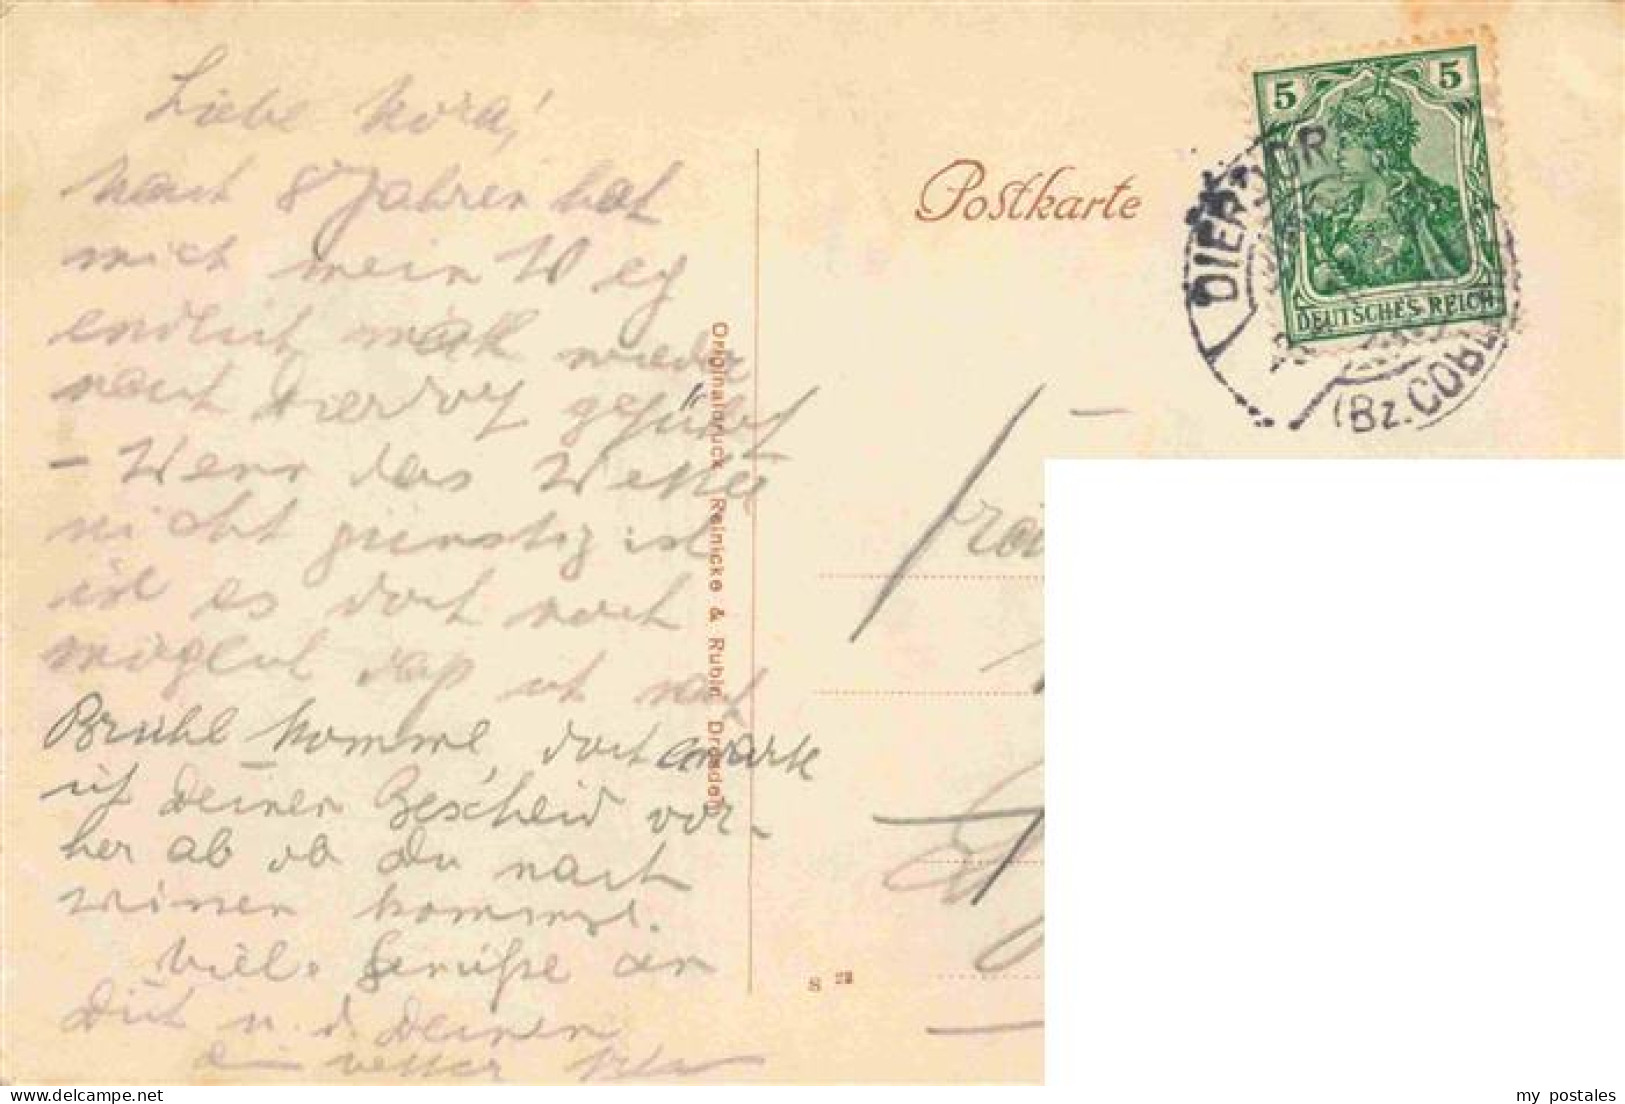 Liebe Kora!
nach 8 Jahren hat
mich mein Weg
endlich mal wieder
nach Dierdorf geführt
- Wenn das Wetter
nicht günstig ist
ist es doch noch
möglich daß ich nach
Brühl komme, doch warte
ich deinen Bescheid vor-
her ab ob du nach
kommst.
Viele Grüße an
Dich u. d. Deinen
dein Vetter
Originaldruck Reinicke & Rubin Dresden
S 28
Postkarte
5 5
DEUTSCHES REICH
DIERDORF
(Bz. COBL
my postales